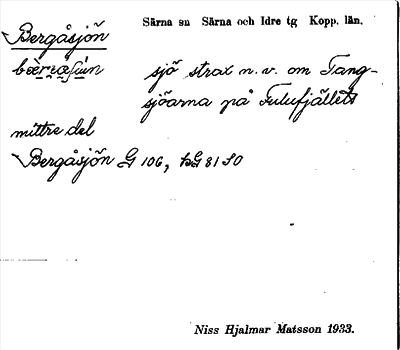 Bergåsjön
Särna sn Särna och Idre tg Kopp. län.
sjö strax n.v. om Tang-
sjöarna på Fulufjällets
mittre del
Bergåsjön G 106, hG 81 SO
Niss Hjalmar Matsson 1933.